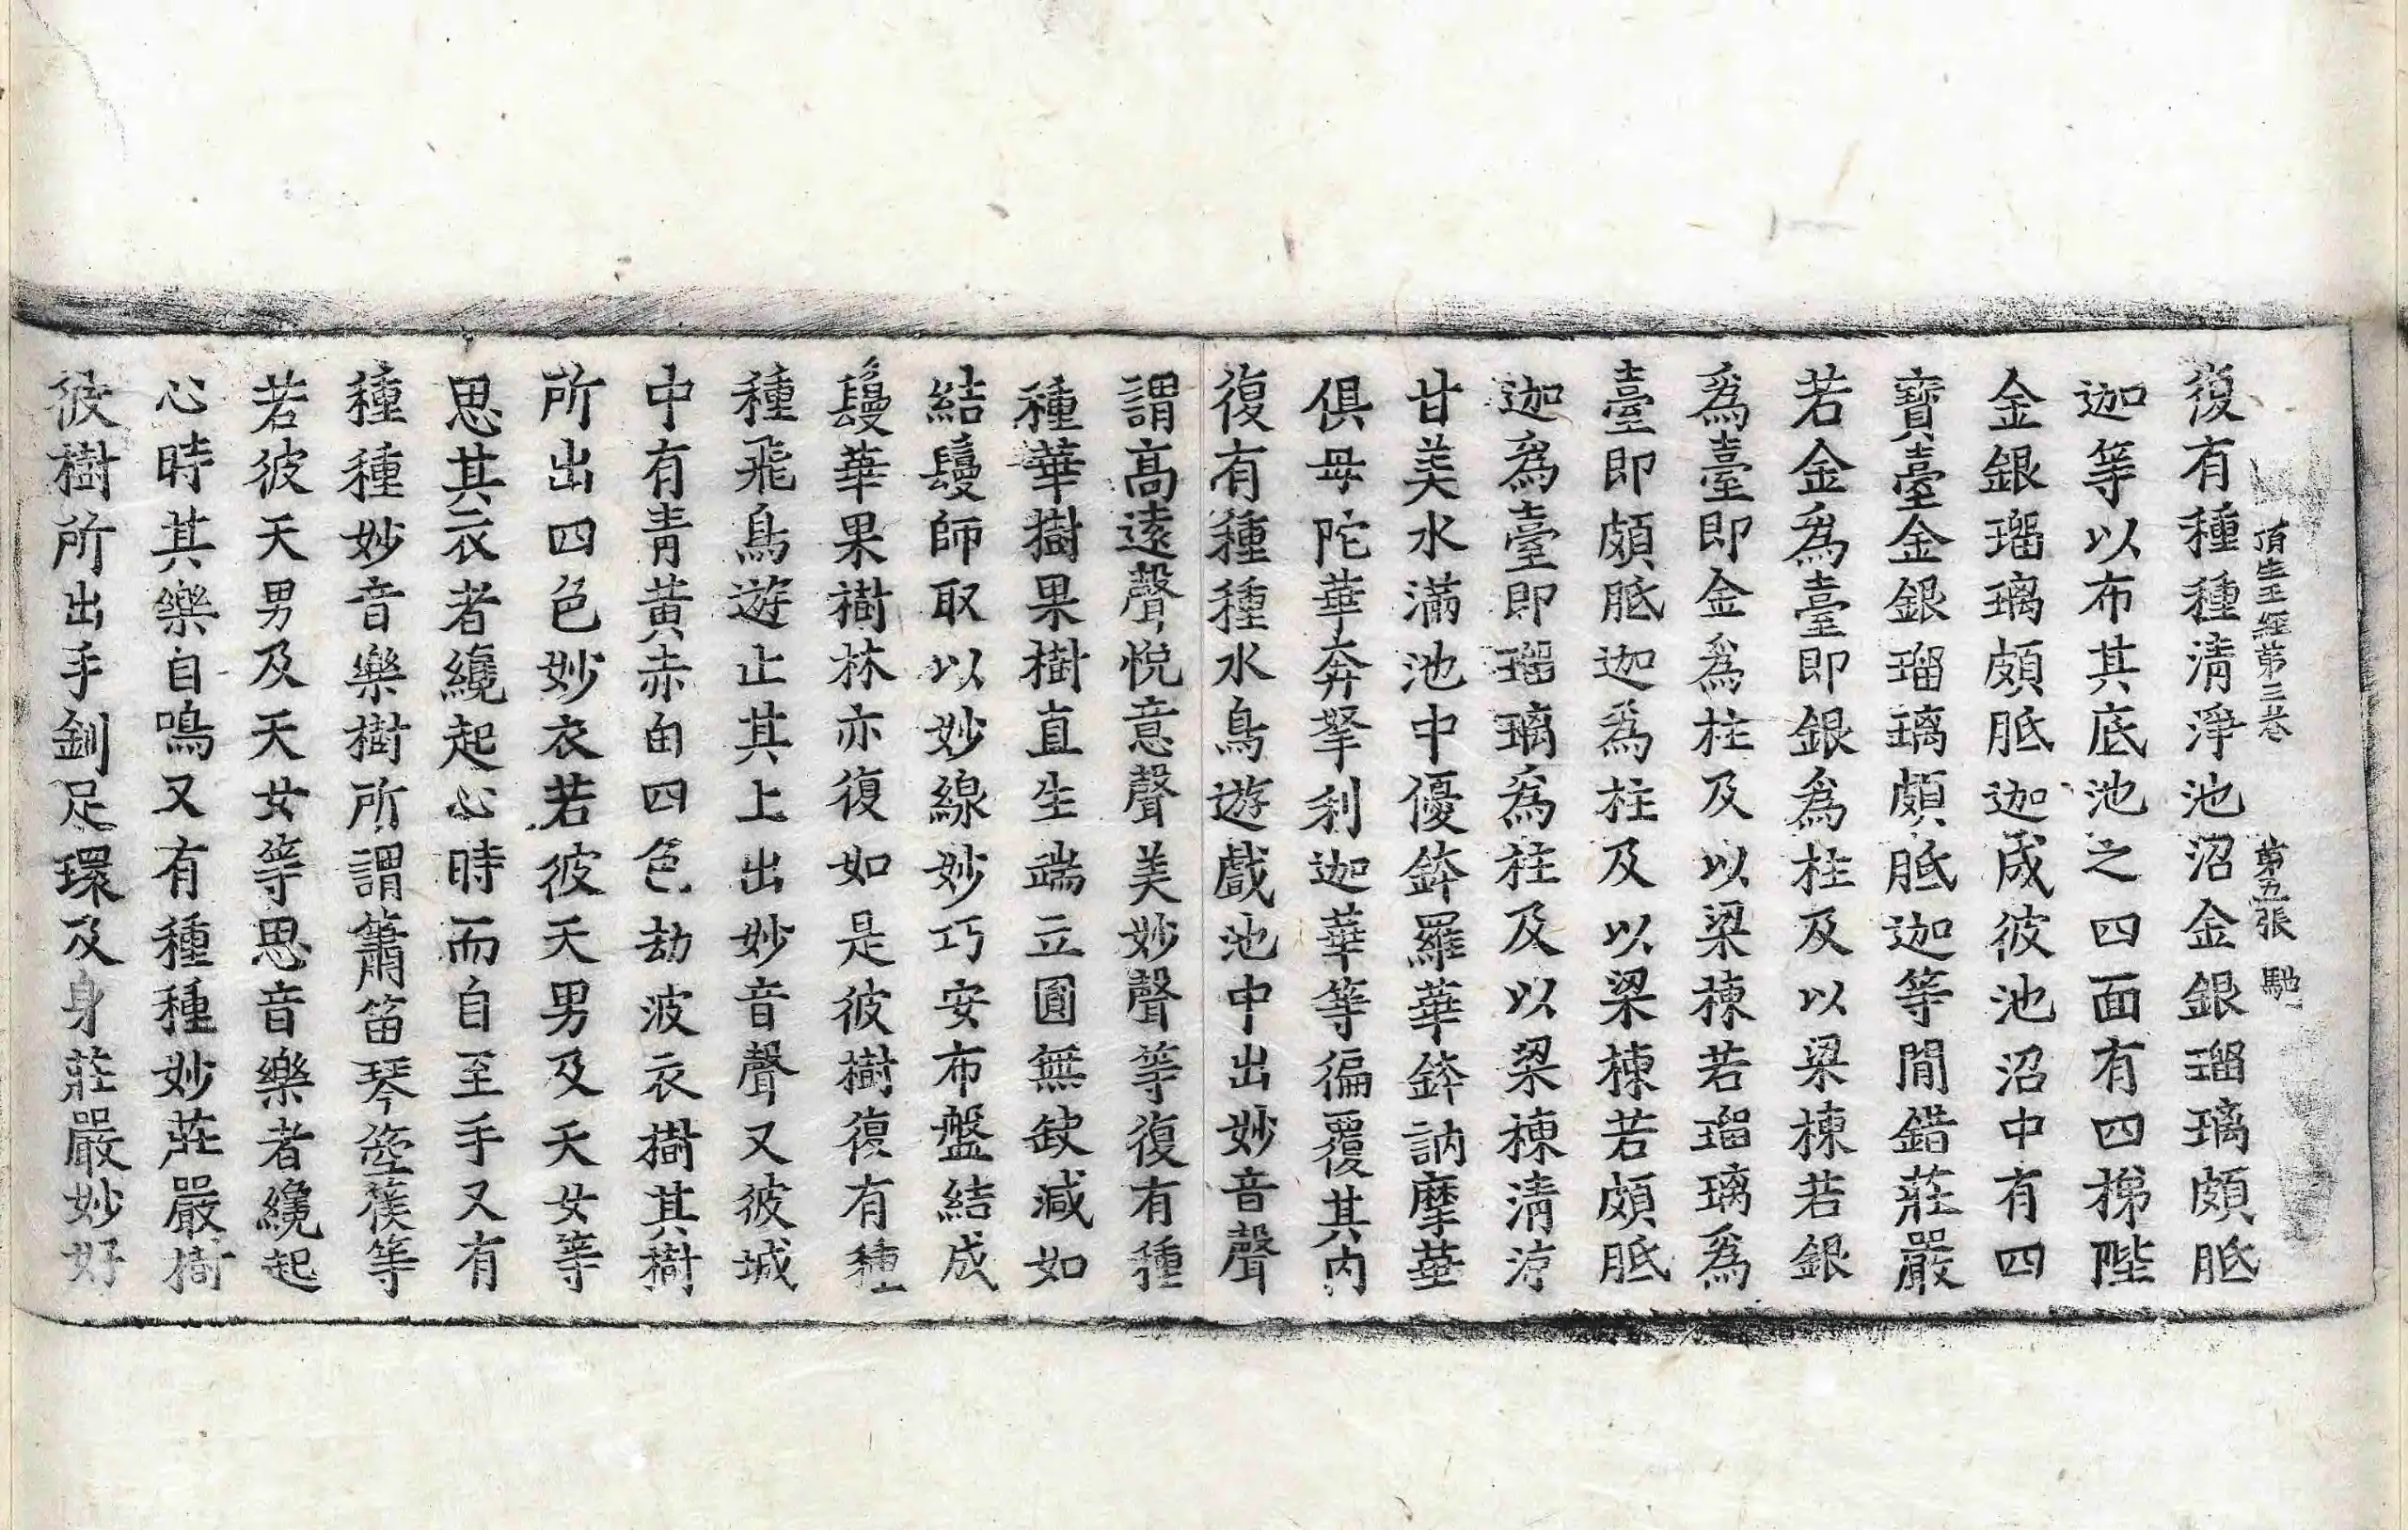 頂生王經第三卷　第五張　馳
復有種種清淨池沼金銀瑠璃頗胝
迦等以布其底池之四面有四梯陛
金銀瑠璃頗胝迦成彼池沼中有四
寶臺金銀瑠璃頗胝迦等間錯莊嚴
若金爲臺即銀爲柱及以梁棟若銀
爲臺即金爲柱及以梁棟若瑠璃爲
臺即頗胝迦爲柱及以梁棟若頗胝
迦爲臺即瑠璃爲柱及以梁棟清涼
甘美水滿池中優鉢羅華鉢訥摩華
俱母陀華奔拏利迦華等徧覆其內
復有種種水鳥遊戲池中出妙音聲
謂高遠聲悅意聲美妙聲等復有種
種華樹果樹直生端立圓無缺減如
結鬘師取以妙線妙巧安布盤結成
鬘華果樹林亦復如是彼樹復有種
種飛鳥遊止其上出妙音聲又彼城
中有青黃赤白四色劫波衣樹其樹
所出四色妙衣若彼天男及天女等
思其衣者纔起心時而自至手又有
種種妙音樂樹所謂簫笛琴箜篌等
若彼天男及天女等思音樂者纔起
心時其樂自鳴又有種種妙莊嚴樹
彼樹所出手釧足環及身莊嚴妙好